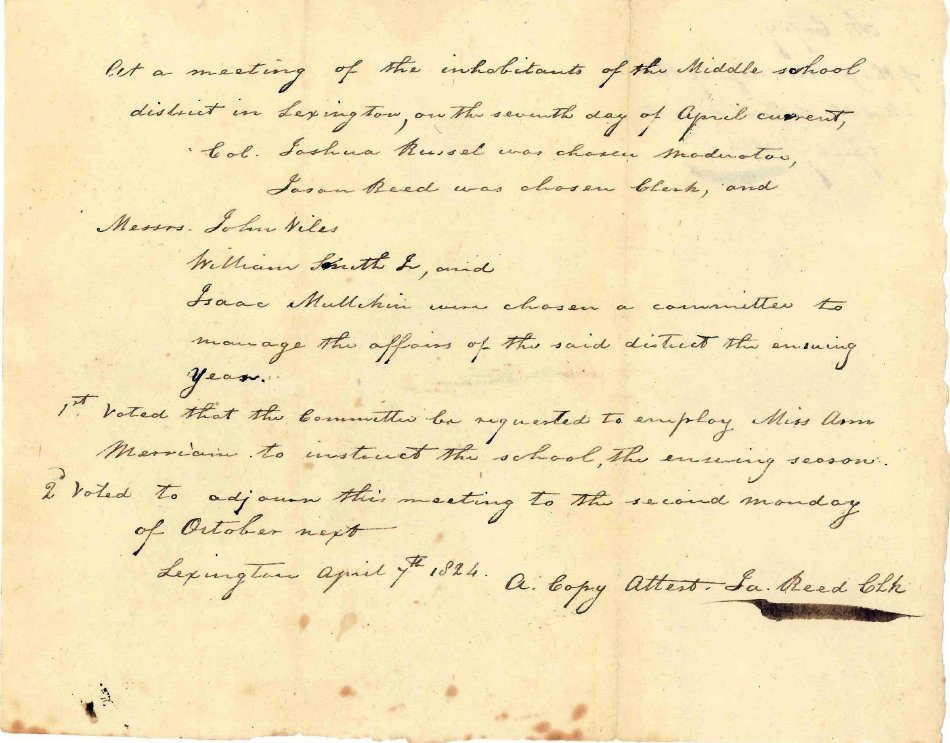 At a meeting of the inhabitants of the Middle school
district in Lexington, on the seventh day of April current,
Col. Joshua Russel was chosen Moderator,
Jason Reed was chosen Clerk, and
Messrs. John Viles
William Smith Jr, and
Isaac Mullikin were chosen a committee to
manage the affairs of the said district the ensuing
year.
1st. Voted that the Committe be requested to employ Miss Ann
Merriam to instruct the school, the ensuing season.
2d Voted to adjourn this meeting to the second monday
of October next
Lexington April 7th 1824.
A. Copy Attest. Ja. Reed Clk